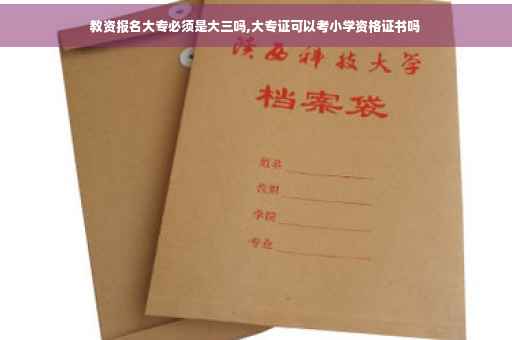 教资报名大专必须是大三吗,大专证可以考小学资格证书吗
陕西科技大学
档案袋
姓名
学院
专业